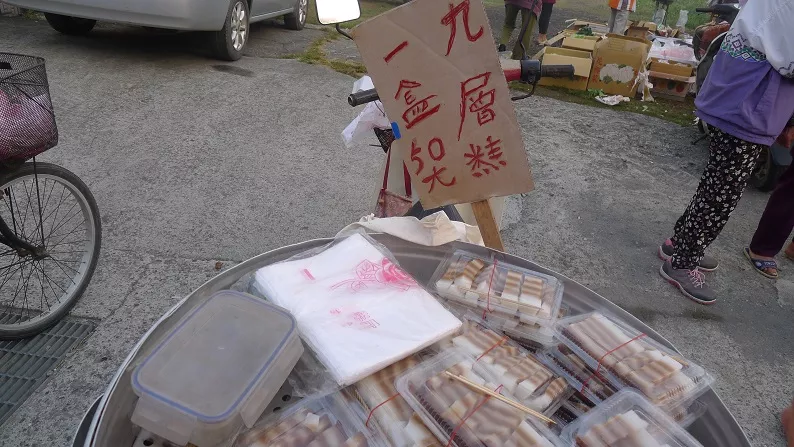 九層糕
一盒50大